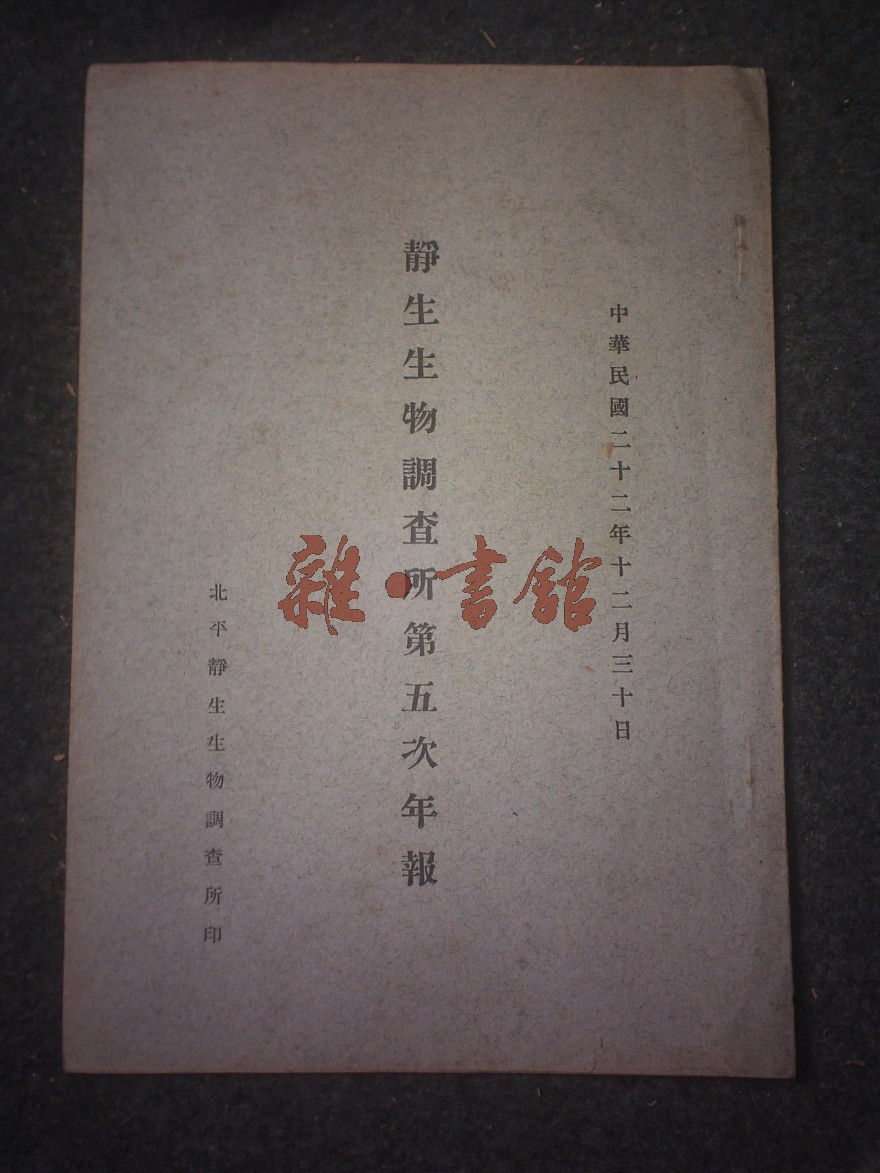 中華民國二十二年十二月三十日
靜生生物調查所第五次年報
北平靜生生物調查所印
雜·書館